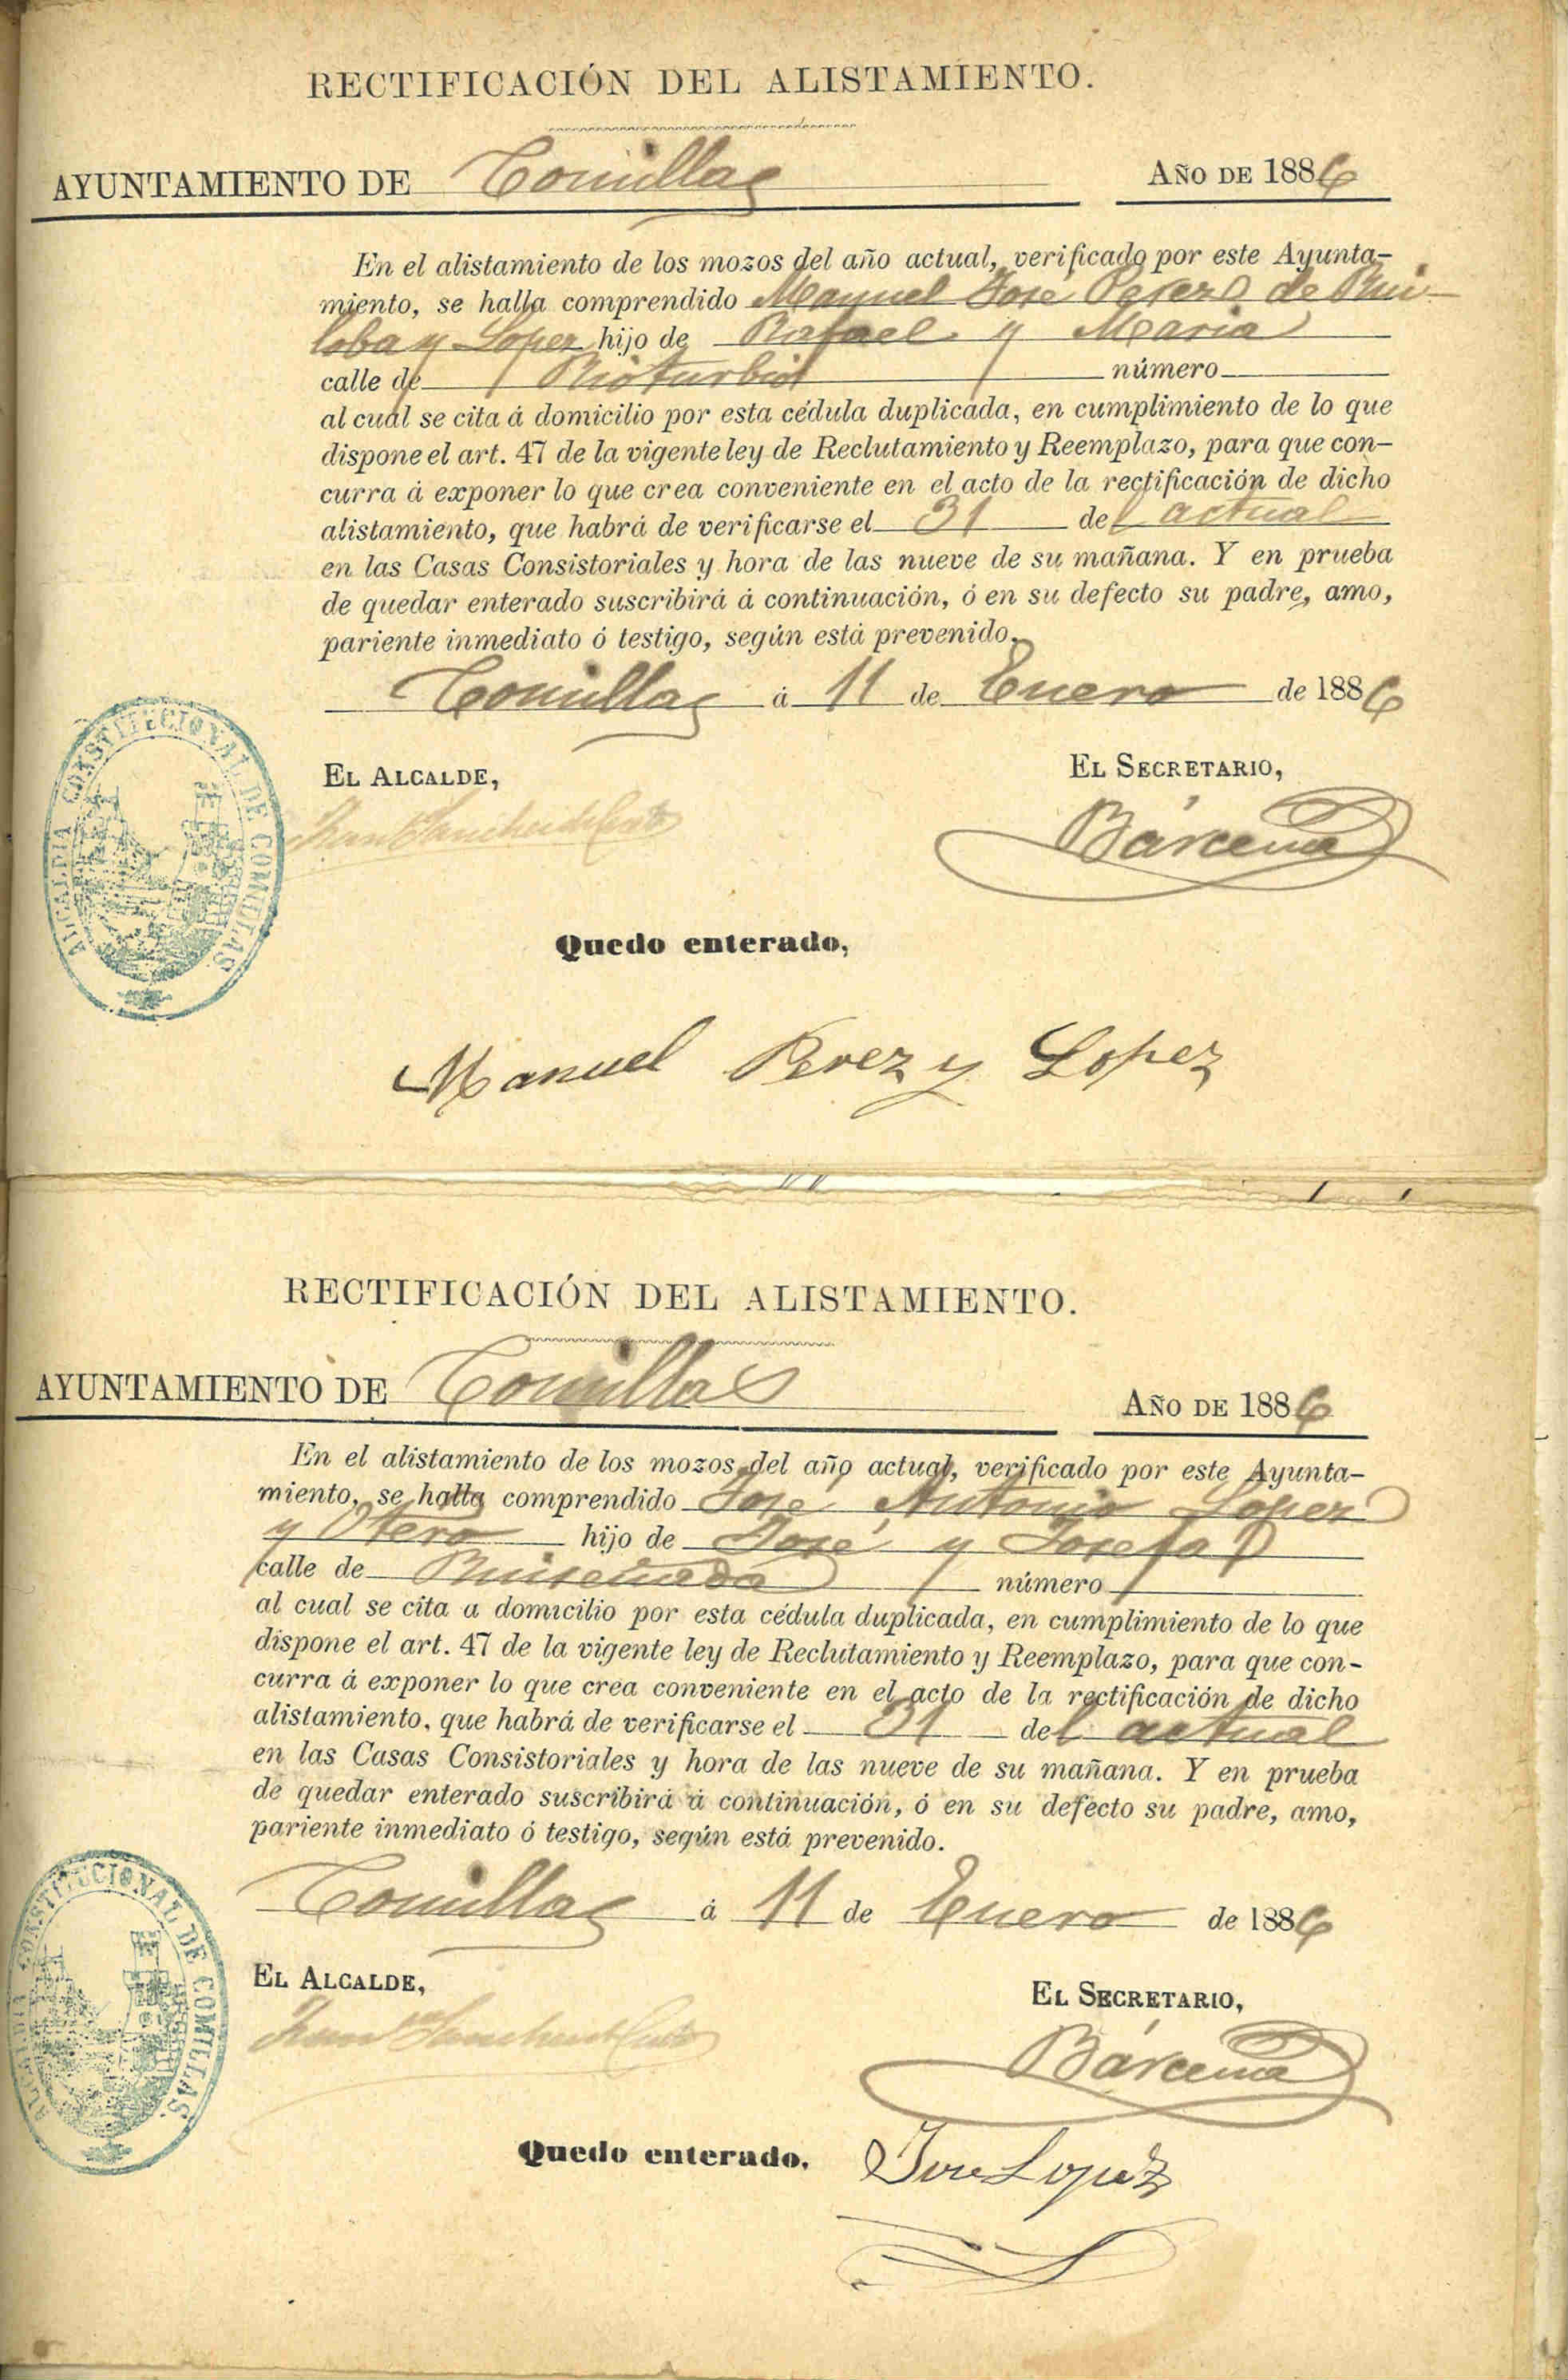 RECTIFICACIÓN DEL ALISTAMIENTO.
AYUNTAMIENTO DE Comillas AÑO DE 1886
En el alistamiento de los mozos del año actual, verificado por este Ayunta-
miento, se halla comprendido Manuel José Perez de Rui-
loba y Lopez hijo de Rafael y Maria
calle de Rioturbio número
al cual se cita á domicilio por esta cédula duplicada, en cumplimiento de lo que
dispone el art. 47 de la vigente ley de Reclutamiento y Reemplazo, para que con-
curra á exponer lo que crea conveniente en el acto de la rectificación de dicho
alistamiento, que habrá de verificarse el 31 del actual
en las Casas Consistoriales y hora de las nueve de su mañana. Y en prueba
de quedar enterado suscribirá á continuación, ó en su defecto su padre, amo,
pariente inmediato ó testigo, según está prevenido.
Comillas á 11 de Enero de 1886
EL ALCALDE, EL SECRETARIO,
Juan Sanchez de Cueto Bárcena
ALCALDIA CONSTITUCIONAL DE COMILLAS.
Quedo enterado,
Manuel Perez y Lopez
RECTIFICACIÓN DEL ALISTAMIENTO.
AYUNTAMIENTO DE Comillas AÑO DE 1886
En el alistamiento de los mozos del año actual, verificado por este Ayunta-
miento, se halla comprendido José Antonio Lopez
y Otero hijo de José y Josefa
calle de Ruiseñada número
al cual se cita a domicilio por esta cédula duplicada, en cumplimiento de lo que
dispone el art. 47 de la vigente ley de Reclutamiento y Reemplazo, para que con-
curra á exponer lo que crea conveniente en el acto de la rectificación de dicho
alistamiento, que habrá de verificarse el 31 del actual
en las Casas Consistoriales y hora de las nueve de su mañana. Y en prueba
de quedar enterado suscribirá á continuación, ó en su defecto su padre, amo,
pariente inmediato ó testigo, según está prevenido.
Comillas á 11 de Enero de 1886
EL ALCALDE, EL SECRETARIO,
Juan Sanchez de Cueto Bárcena
ALCALDIA CONSTITUCIONAL DE COMILLAS.
Quedo enterado, Jose Lopez